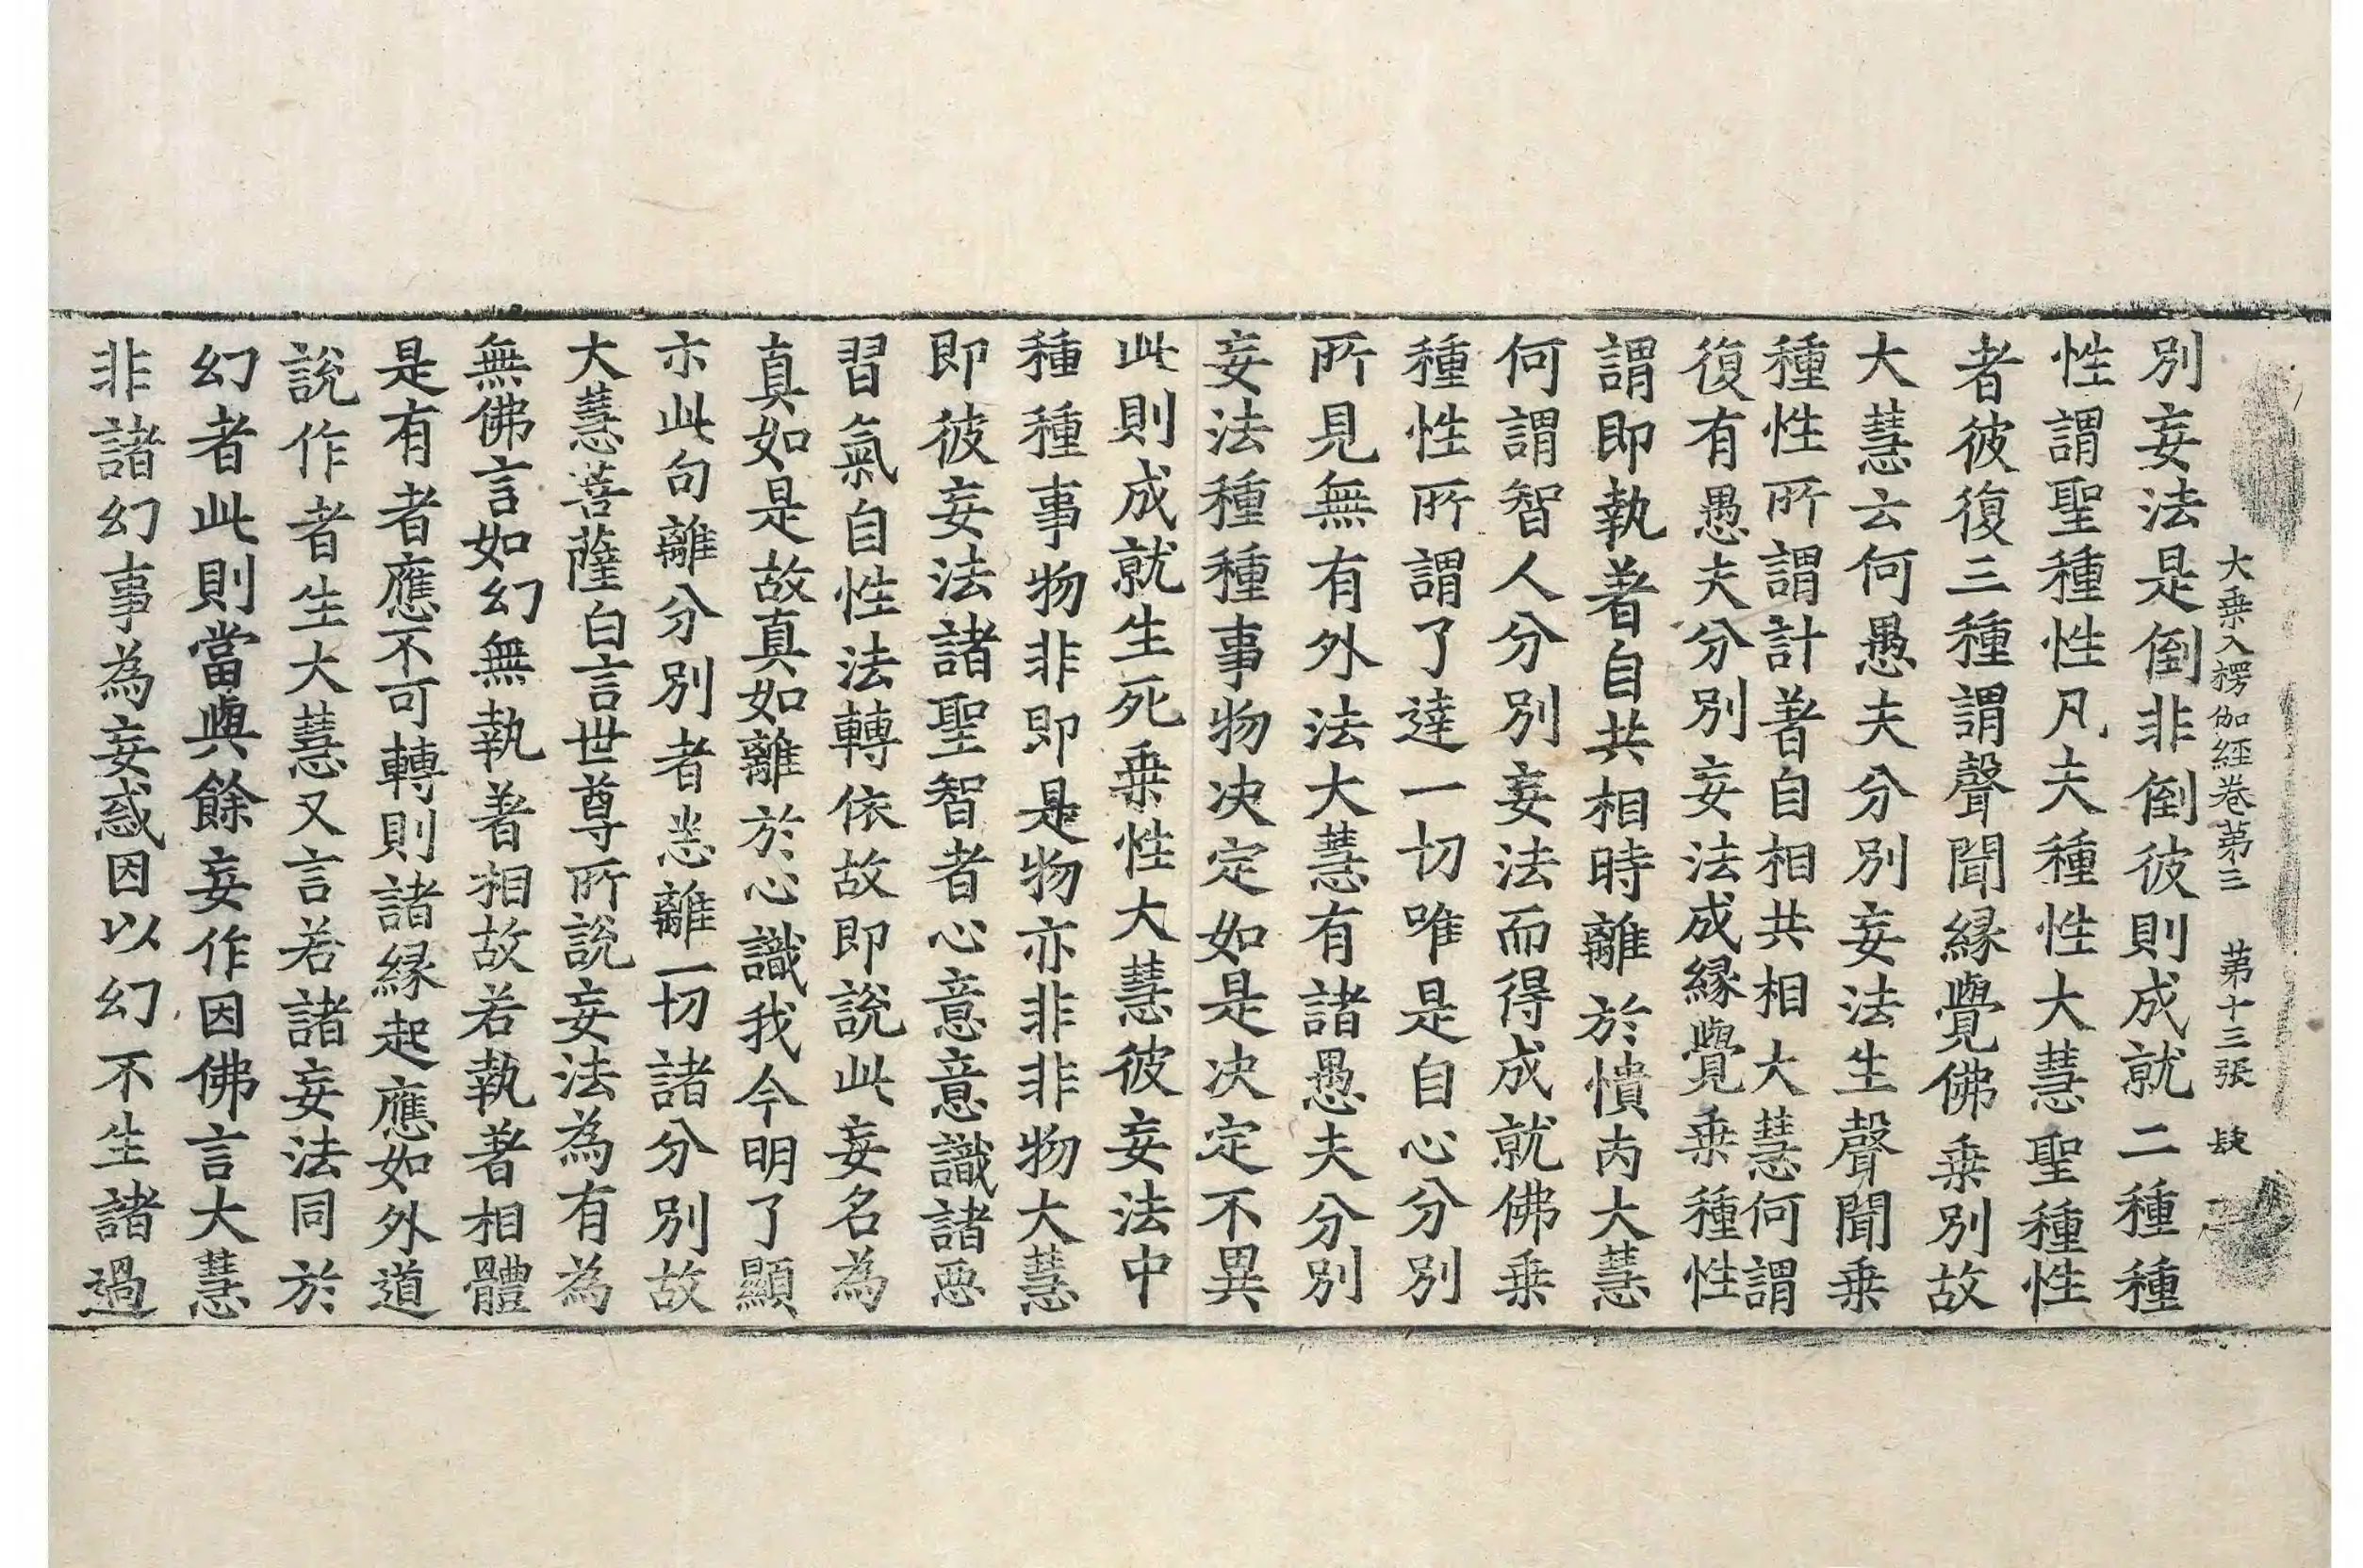 大乗入楞伽經卷苐三　苐十三張　肄
別妄法是倒非倒彼則成就二種種
性謂聖種性凡夫種性大慧聖種性
者彼復三種謂聲聞縁覺佛乗別故
大慧云何愚夫分別妄法生聲聞乗
種性所謂計著自相共相大慧何謂
復有愚夫分別妄法成縁覺乗種性
謂即執著自共相時離於憒丙大慧
何謂智人分別妄法而得成就佛乗
種性所謂了達一切唯是自心分別
所見無有外法大慧有諸愚夫分別
妄法種種事物決定如是決定不異
此則成就生死乗性大慧彼妄法中
種種事物非即是物亦非非物大慧
即彼妄法諸聖智者心意意識諸惡
習氣自性法轉依故即說此妄名為
真如是故真如離於心識我今明了顯
示此句離分別者悉離一切諸分別故
大慧菩薩白言世尊所說妄法為有為
無佛言如幻無執著相故若執著相體
是有者應不可轉則諸縁起應如外道
說作者生大慧又言若諸妄法同於
幻者此則當與餘妄作因佛言大慧
非諸幻事為妄惑因以幻不生諸過